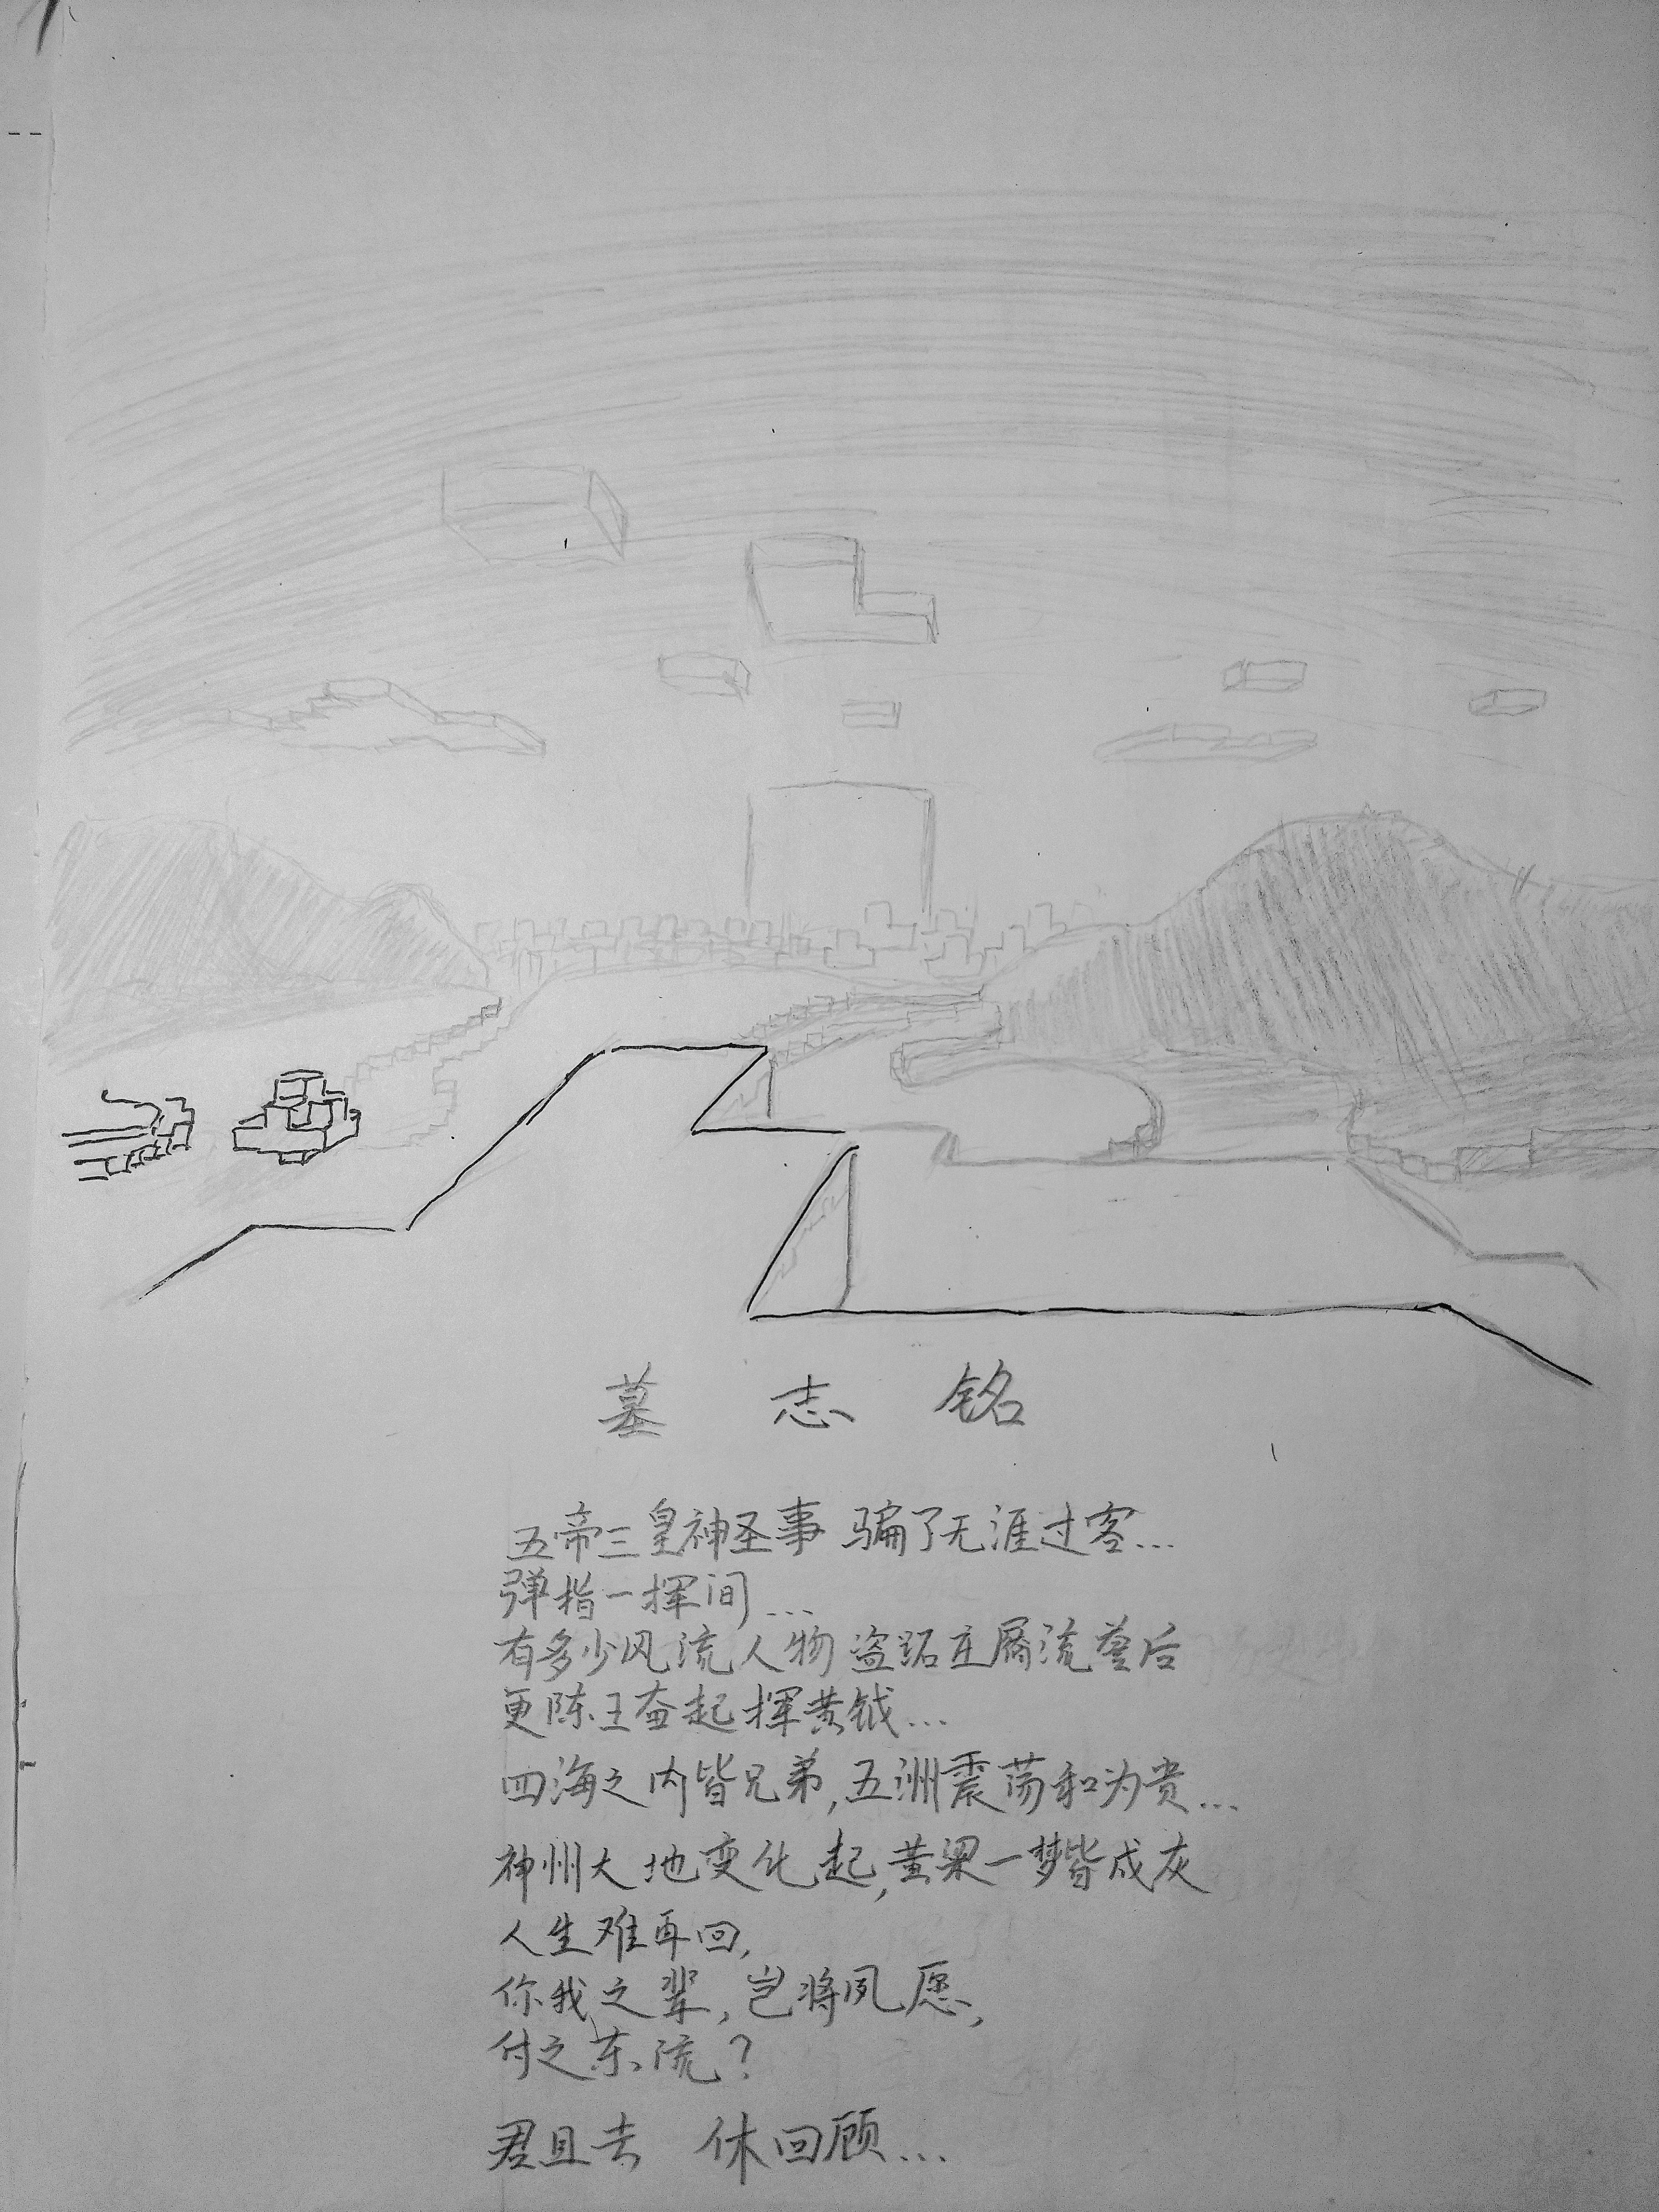 墓 志 铭
五帝三皇神圣事 骗了无涯过客...
弹指一挥间...
有多少风流人物 盗跖庄屩流誉后
更陈王奋起挥黄钺...
四海之内皆兄弟,五洲震荡和为贵...
神州大地变化起,黄梁一梦皆成灰
人生难再回,
你我之辈,岂将夙愿,
付之东流?
君且去 休回顾...